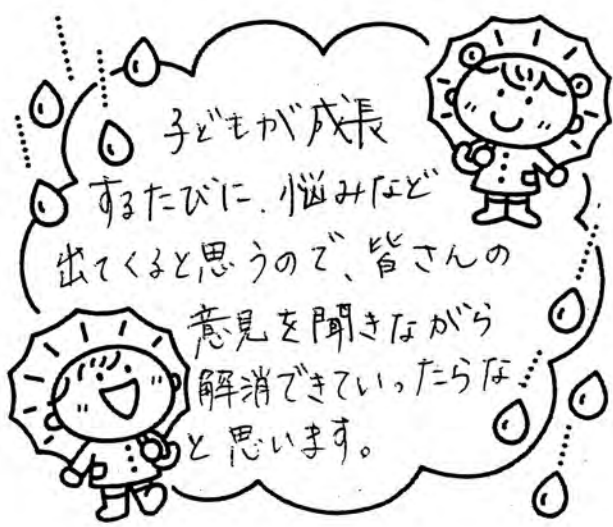 子どもが成長
するたびに、悩みなど
出てくると思うので、皆さんの
意見を聞きながら
解消できていったらな
と思います。